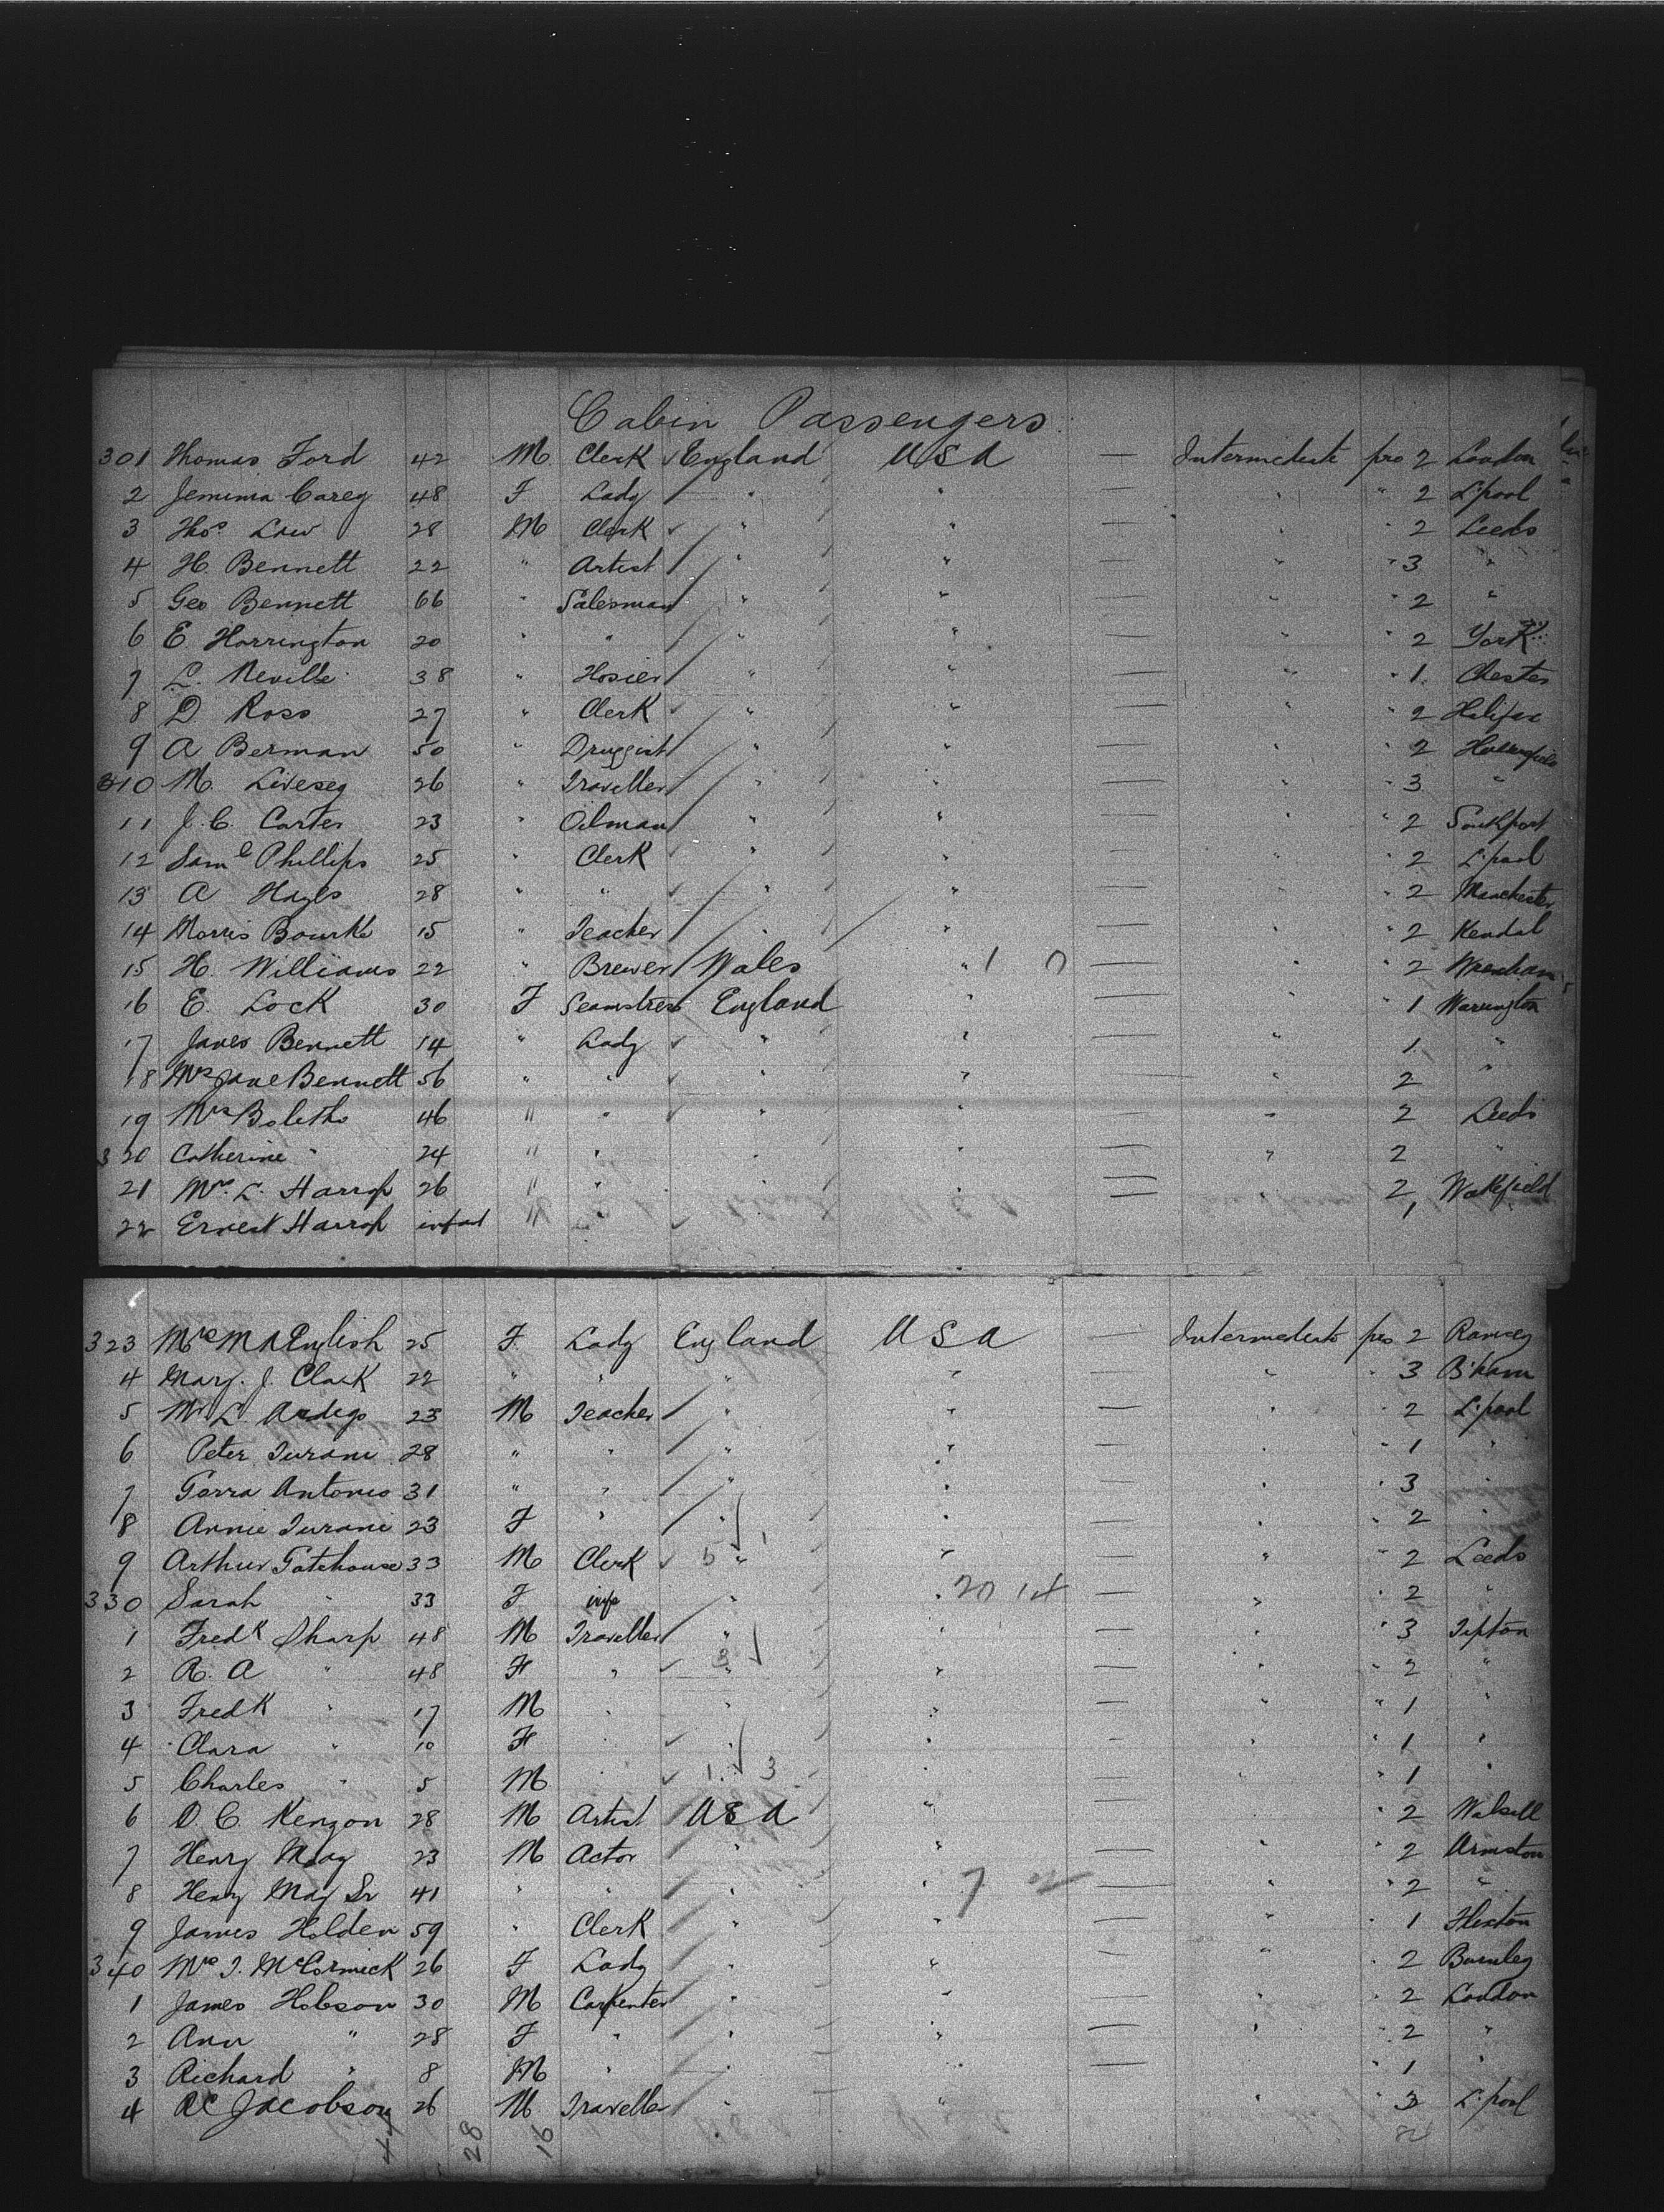 Cabin Passengers
301 Thomas Ford 42 M Clerk England USA — Intermediate pro 2 London
2 Jemima Carey 48 F Lady " " — " " 2 L'pool
3 Thos Law 28 M Clerk " " — " " 2 Leeds
4 H. Bennett 22 " Artist " " — " " 3 "
5 Geo Bennett 66 " Salesman " " — " " 2 "
6 E. Harrington 20 " " " " — " " 2 York
7 L. Neville 38 " Hosier " " — " " 1 Chester
8 D Ross 27 " Clerk " " — " " 2 Halifax
9 A Berman 50 " Druggist " " — " " 2
310 M. Livesey 26 " Traveller " " — " " 3 "
11 J. C. Carter 23 " Oilman " " — " " 2 Southport
12 Saml Phillips 25 " Clerk " " — " " 2 L'pool
13 A Hayes 28 " " " " — " " 2 Manchester
14 Morris Bourke 15 " Teacher " " — " " 2 Kendal
15 H. Williams 22 " Brewer Wales " 1 0 — " " 2 Wrexham
16 E. Lock 30 F Seamstress England " — " " 1 Warrington
17 James Bennett 14 " Lady " " — " 1 "
18 Mrs Jane Bennett 56 " " " " — " 2 "
19 Mrs Boletho 46 " " " " — " 2 Leeds
320 Catherine " 24 " " " " — " 2 "
21 Mrs. L. Harrop 26 " " " " — 2 Wakefield
22 Ernest Harrop infant " " " — 1
323 Mrs M A English 25 F. Lady England USA — Intermediate pro 2 Ramsey
4 Mary. J. Clark 22 " " " " — " " 3 B'ham
5 Mr L Ardego 23 M Teacher " " — " " 2 L'pool
6 Peter Turani 28 " " " " — " " 1 "
7 Garra Antonio 31 " " " " — " " 3 "
8 Annie Turani 23 F " " " — " " 2 "
9 Arthur Gatehouse 33 M Clerk 5 " 1 " — " " 2 Leeds
330 Sarah " 33 F wife " " 20 14 — " " 2 "
1 Fredk Sharp 48 M Traveller " " — " " 3 Tipton
2 R. A " 48 F " 3 " " — " " 2 "
3 Fredk " 17 M " " " — " " 1 "
4 Clara " 10 F " " " — " " 1 "
5 Charles " 5 M 1. 3 " — " " 1 "
6 D. C. Kenyon 28 M Artist USA " — " 2 Walsall
7 Henry May 23 M Actor " " — " " 2 Urmston
8 Henry May Sr 41 " " " " 7 2 — " " 2 "
9 James Holden 59 " Clerk " " — " " 1 Flixton
340 Mrs J. McCormick 26 F Lady " " — " " 2 Burnley
1 James Hobson 30 M Carpenter " " — " " 2 London
2 Ann " 28 F " " " — " " 2 "
3 Richard " 8 M " " " — " 1 "
4 A C Jacobson 26 M Traveller " " " " 3 L'pool
44 28 16